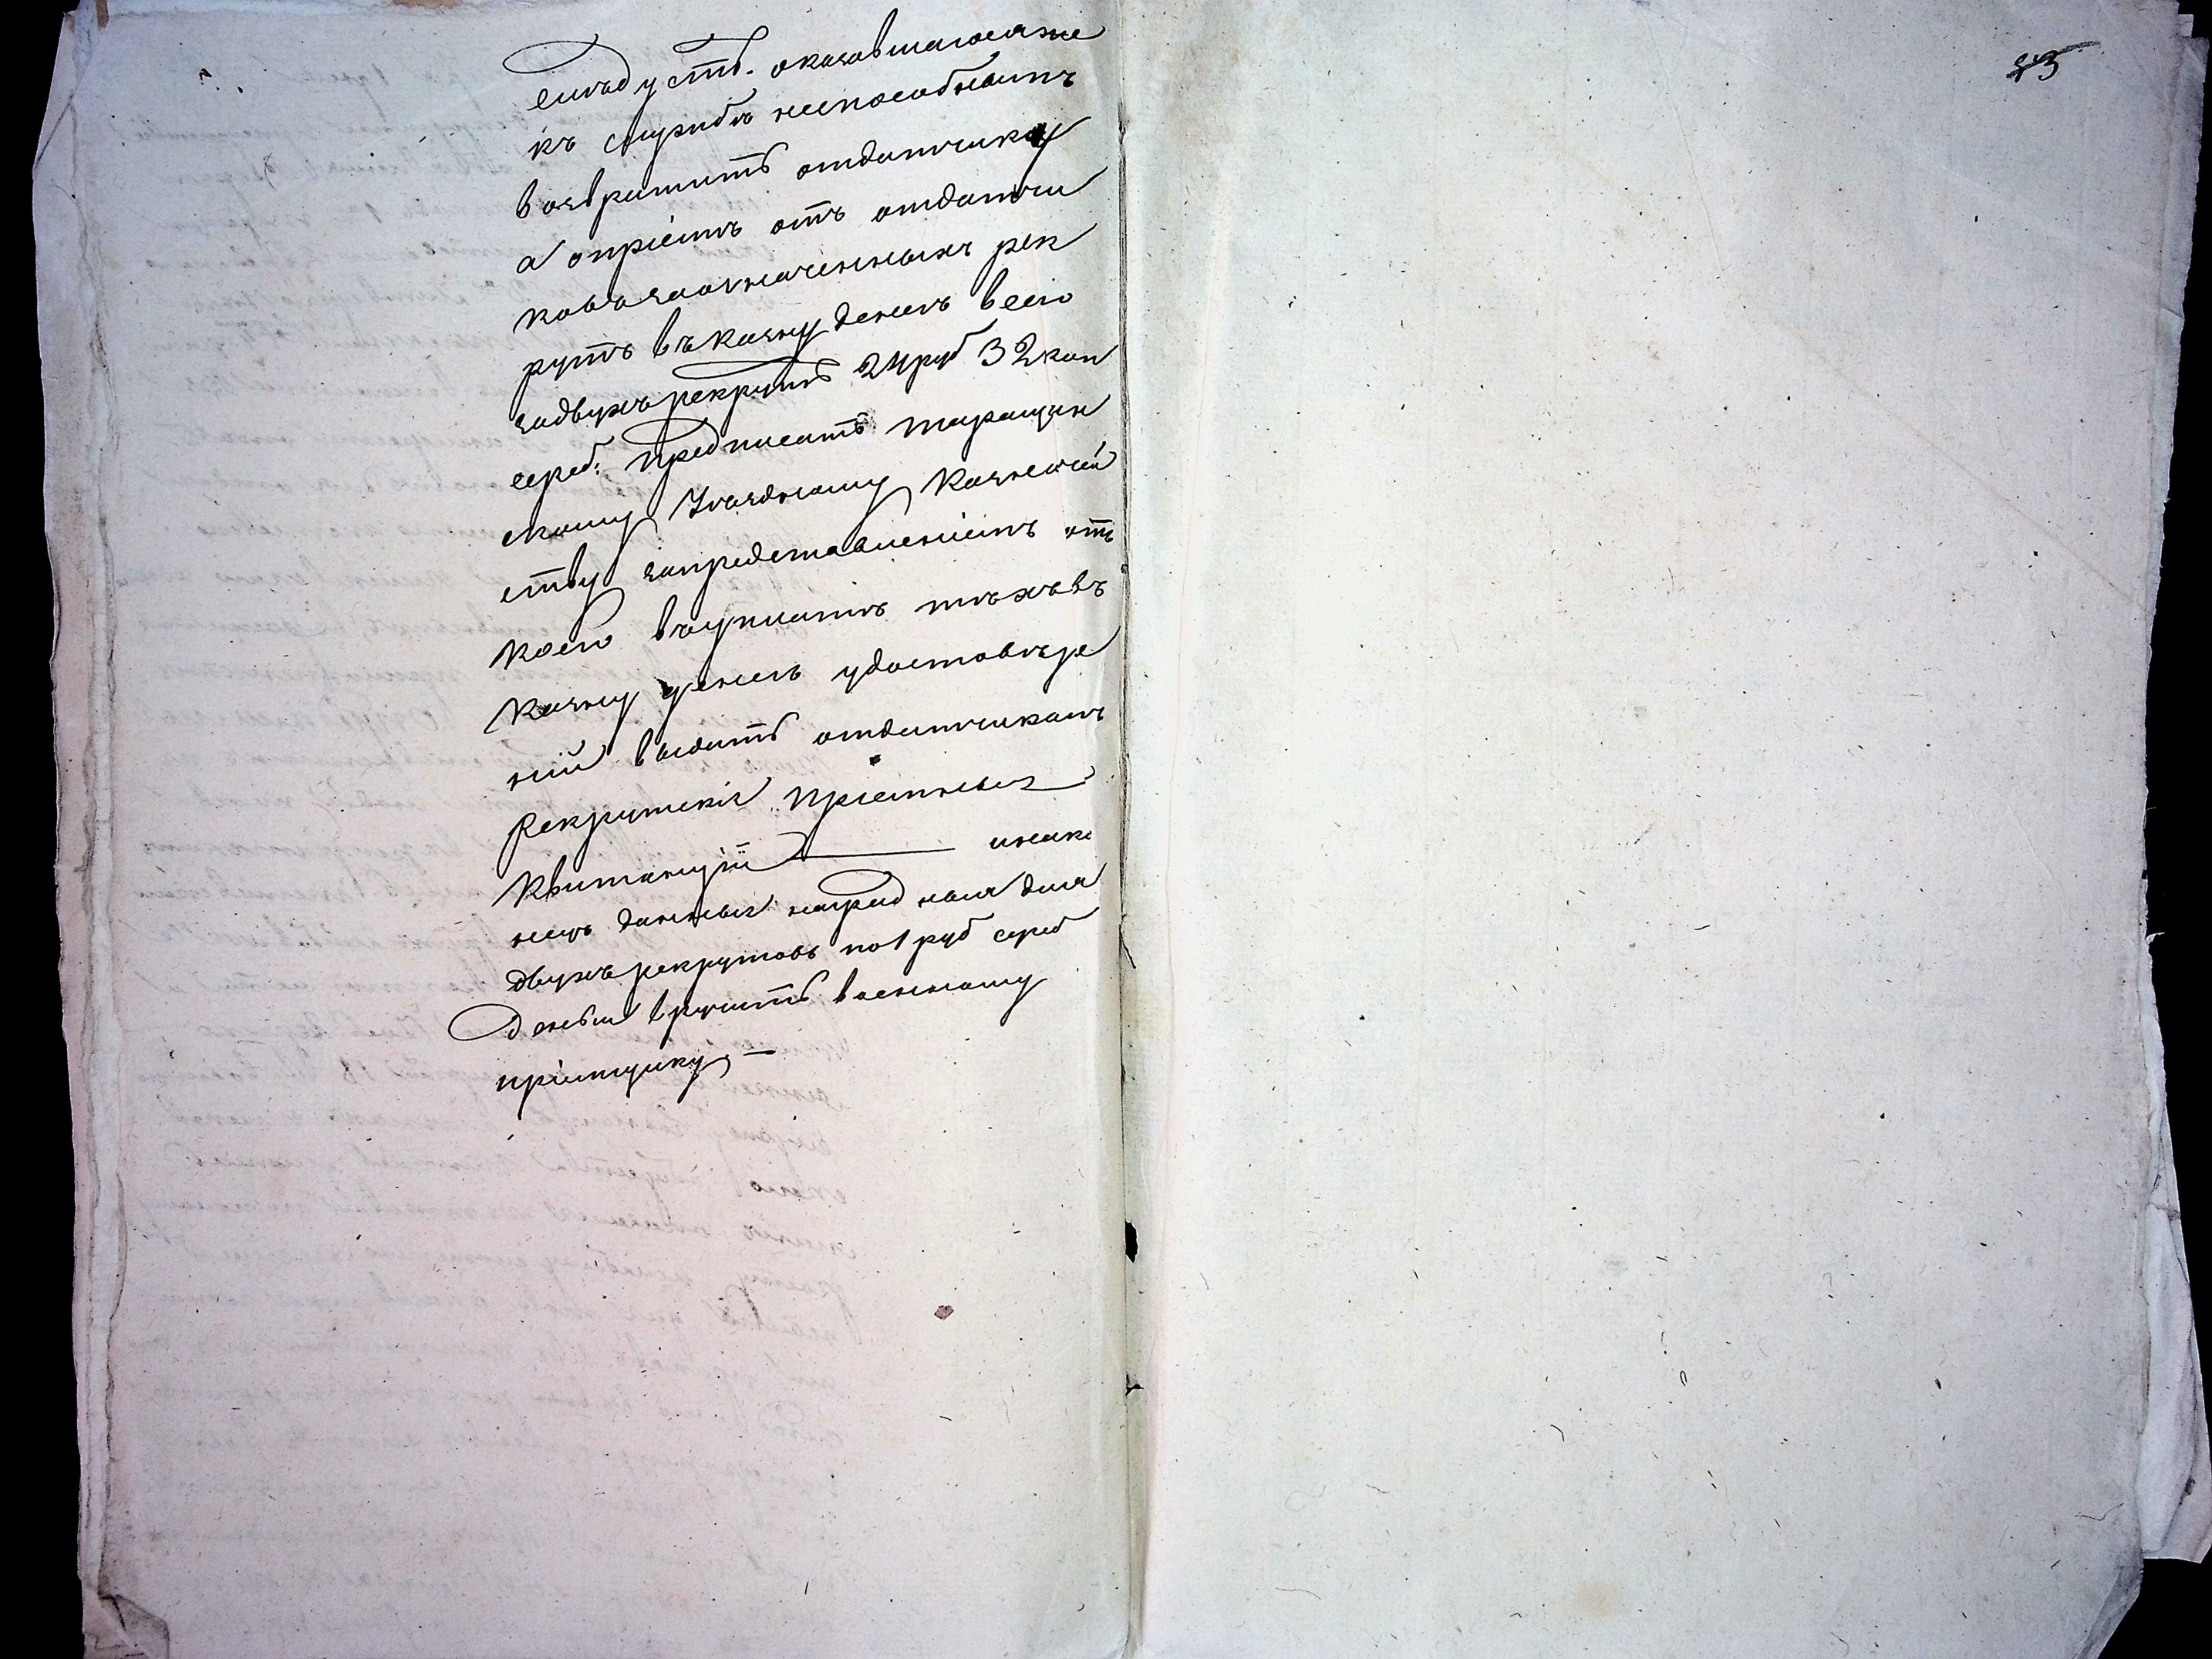 слѣдуетъ. оказавшагося же
къ службѣ неспособнымъ
возвратить отдатчику
а опріемѣ отъ отдатчи
ковъ заозначенныхъ рек
рутъ въ казну денегъ всего
задвухъ рекрутъ 24 руб 32 коп
сереб: Предписать таращан
скому Уѣздному Казначей
ству запредставленіемъ отъ
коего въ уплатѣ тѣхъ въ
казну денегъ удостовѣре
ній выдать отдатчикамъ
Рекрутскія пріемныя
квитанціи
нецъ данныя наград ныя для
двухъ рекрутовъ по 1 руб сереб
деньги вручить военному
пріемщику, —